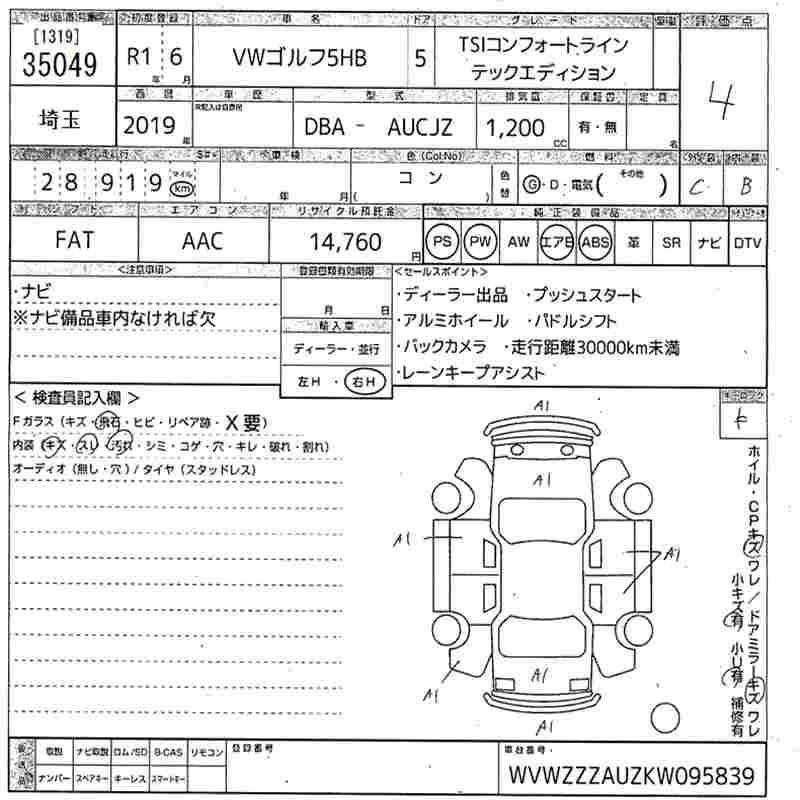 出品番号 初度登録 車名 ドア グレード 車歴 評価点
[1319]
35049
R1 6
年 月
VWゴルフ5HB
5
TSIコンフォートライン
テックエディション
4
埼玉
西暦 車歴 型式 排気量 保証書 定員
2019 年
DBA - AUCJZ
1,200 cc
有・無
名
走行 車検 色(Col.No) 燃料 外装 内装
28919
マイル
km
年 月
コン
( )
色替
G・D・電気( その他 )
C B
ハンドル エアコン リサイクル預託金 純正装備品
FAT
AAC
14,760 円
PS PW AW エアB ABS 革 SR ナビ DTV
<注意事項>
・ナビ
※ナビ備品車内なければ欠
登録書類有効期限
月 日
輸入車
ディーラー・並行
左H・右H
<セールスポイント>
・ディーラー出品 ・プッシュスタート
・アルミホイール ・パドルシフト
・バックカメラ ・走行距離30000km未満
・レーンキープアシスト
< 検査員記入欄 >
Fガラス (キズ・飛石・ヒビ・リペア跡・X要)
内装 (キズ・スレ・汚れ・シミ・コゲ・穴・キレ・破れ・割れ)
オーディオ (無し・穴) / タイヤ (スタッドレス)
A1
A1
A1
A1
A1
A1
A1
キーロック
ホイル・CPキズワレ/ドアミラーキズワレ
小キズ有 小U有 補修有
後送品
取説 ナビ取説 ロム/SD B-CAS リモコン
ナンバー スペアキー キーレス スマートキー
登録番号
車台番号
WVWZZZAUZKW095839